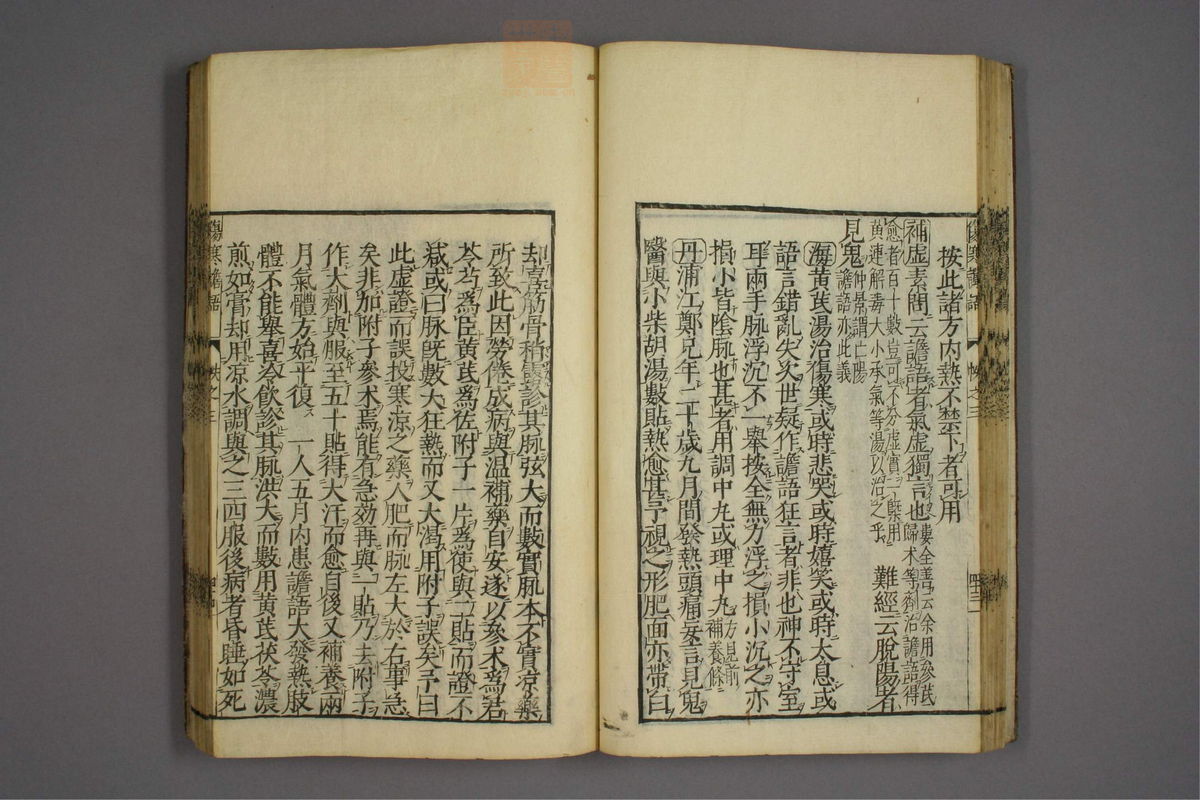 按此諸方内熱不禁下者可用
補虛素問云譫語者氣虛獨言也婁全善云余用參芪
歸朮等劑治譫語得
愈者百十數豈可不分虛實一槩用
黄連解毒大小承氣等湯以治之乎難經云脫陽者
見鬼仲景謂亡陽
譫語亦此義
海黄芪湯治傷寒或時悲哭或時嬉笑或時太息或
語言錯亂失次世疑作譫語狂言者非也神不守室
耳兩手脉浮沉不一舉按全無力浮之損小沉之亦
損小皆陰脉也甚者用調中丸或理中丸方見前
補養條
丹浦江鄭兄年二十歳九月間發熱頭痛妄言見鬼
醫與小柴胡湯數貼熱愈甚予視之形肥面亦帶白
傷寒譫語 帙之三
却喜筋骨稍露診其脉弦大而數實脉本不實凉藥
所致此因勞倦成病與温補藥自安遂以參朮為君
苓芍為臣黄芪為佐附子一片為使與二貼而證不
减或曰脉既數大狂熱而又大渴用附子誤矣予曰
此虛證而誤投寒凉之藥人肥而脉左大於右事急
矣非加附子參朮焉能有急効再與一貼乃去附子
作大劑與服至五十貼得大汗而愈自後又補養兩
月氣體方始平復 一人五月内患譫語大發熱肢
體不能舉喜冷飲診其脉洪大而數用黄芪茯苓濃
煎如膏却用凉水調與之三四服後病者昏睡如死
傷寒譫語 帙之三